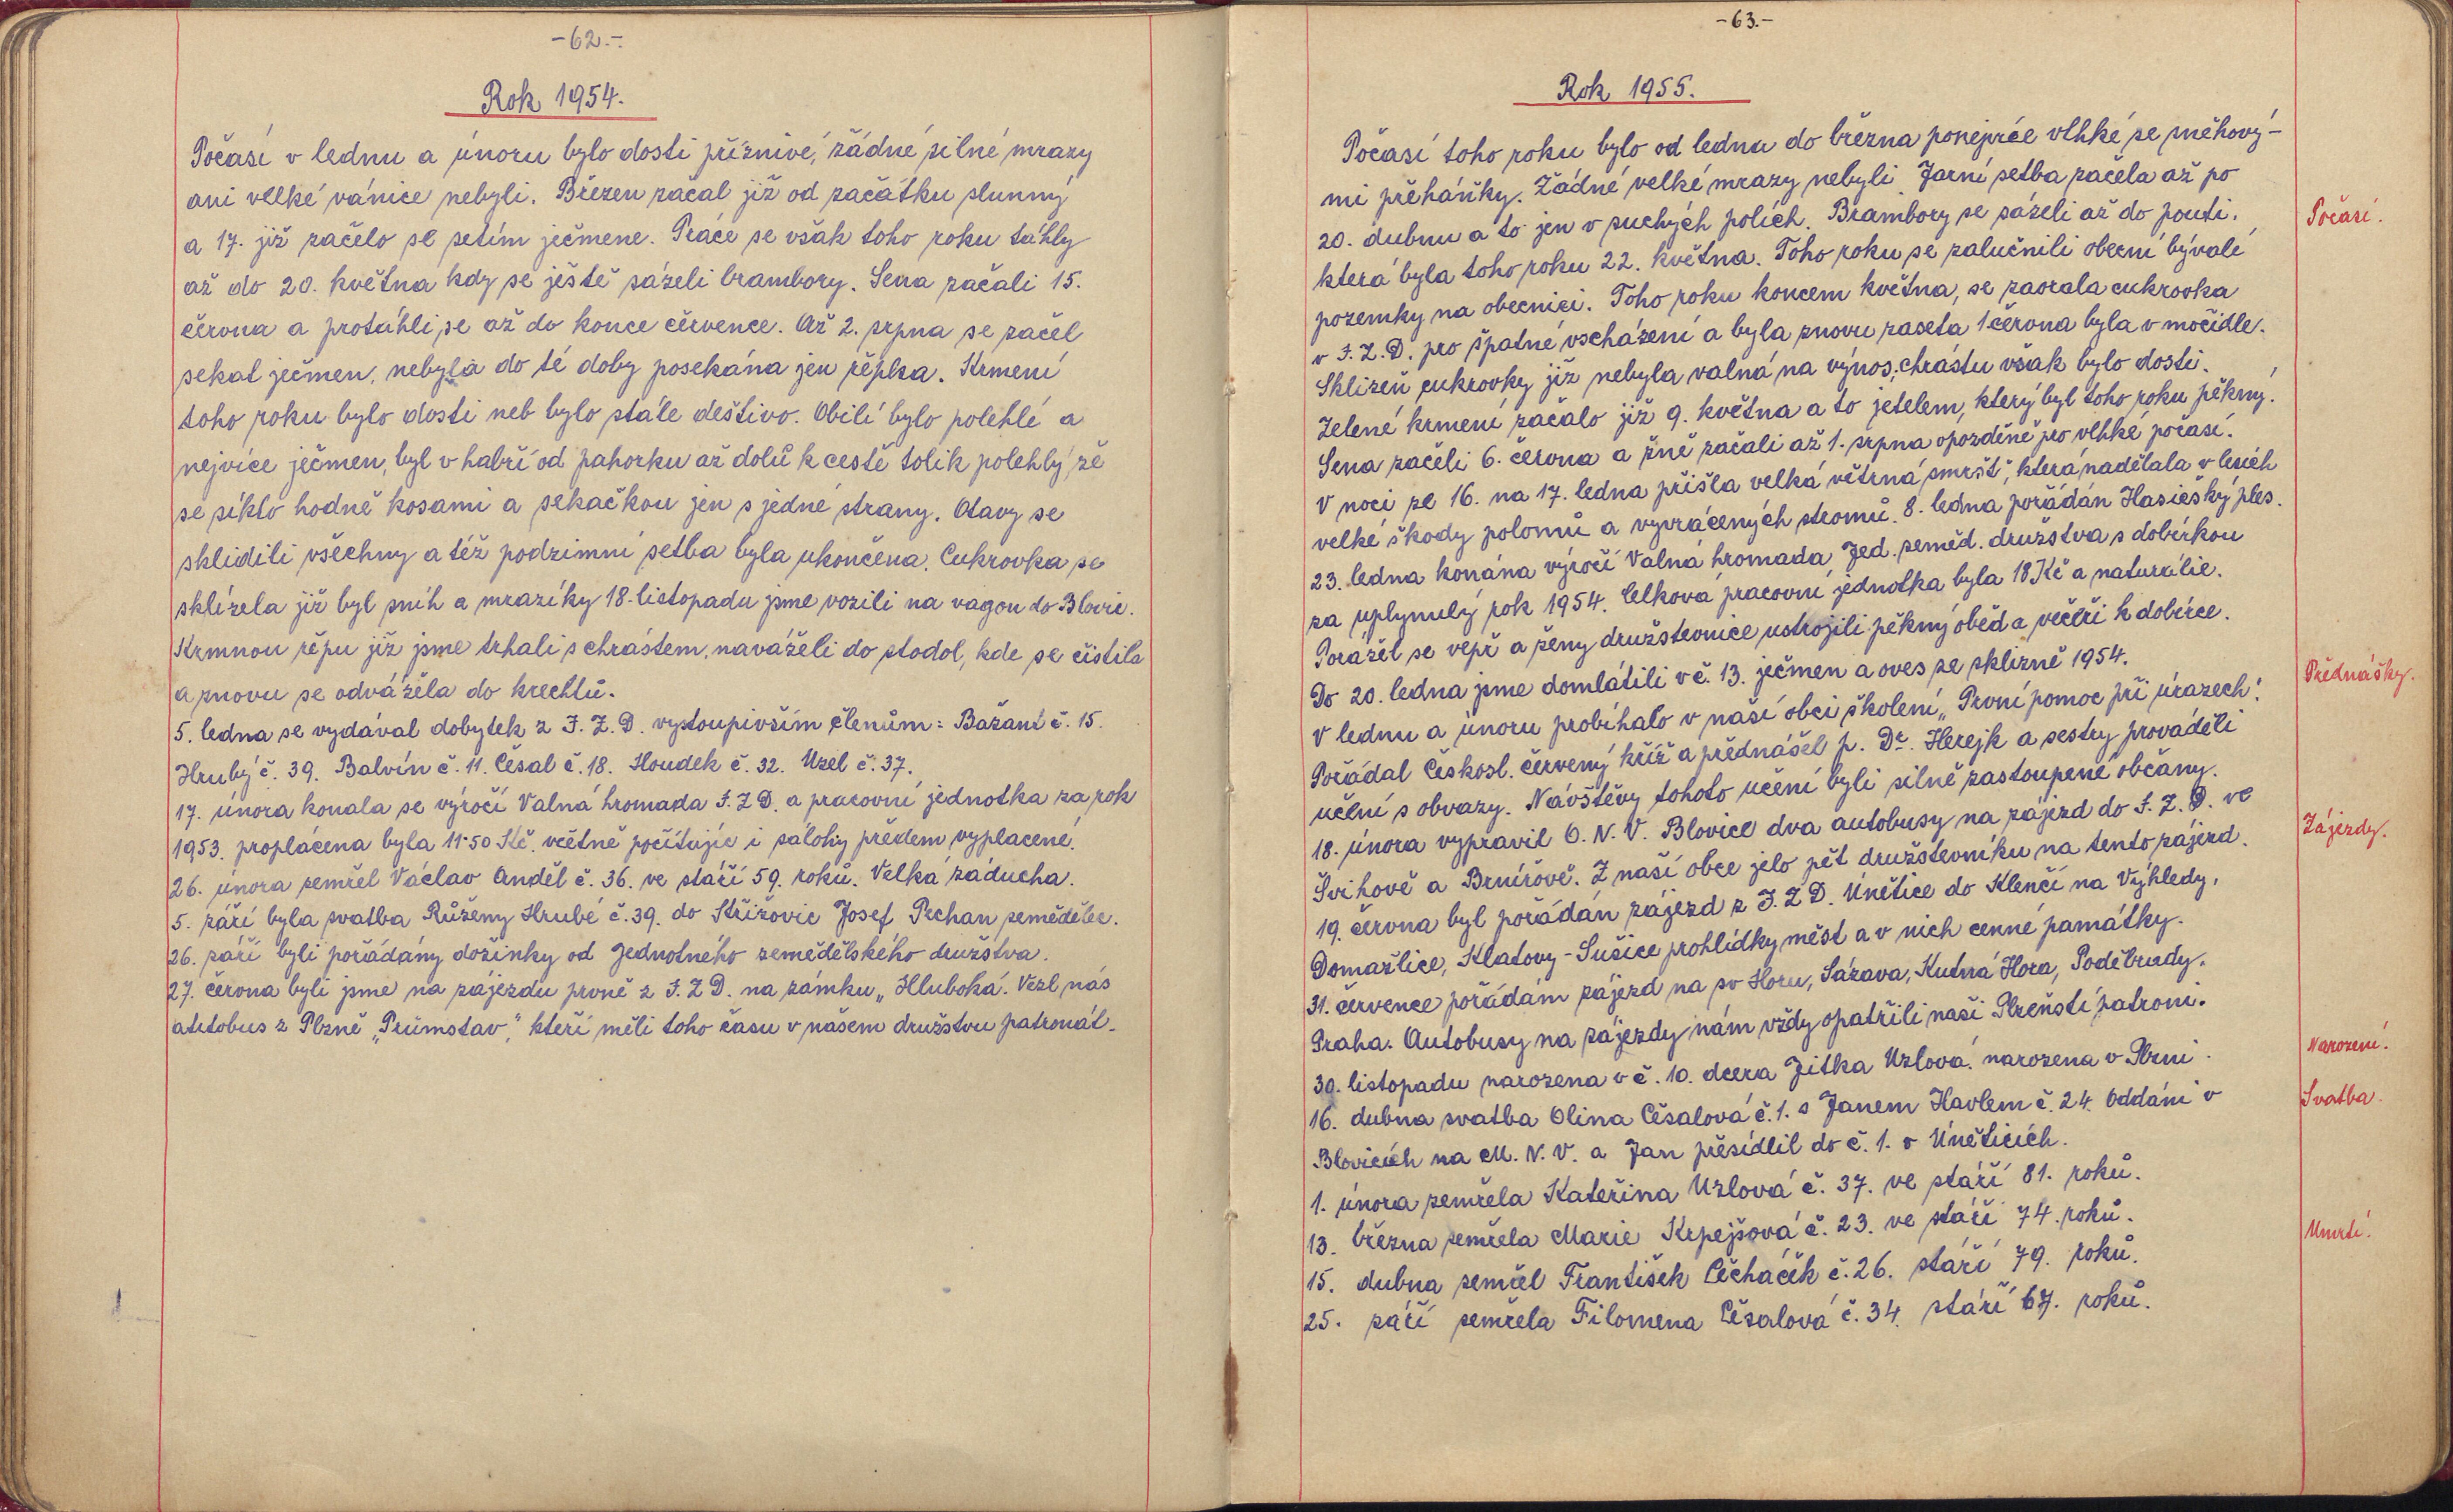 -62.-
Rok 1954.
Počasí v lednu a únoru bylo dosti příznivé, žádné silné mrazy
ani velké vánice nebyli. Březen začal již od začátku slunný
a 17. již začelo se setím ječmene. Práce se však toho roku táhly
až do 20. května kdy se ještě sázeli brambory. Sena začali 15.
června a protáhli se až do konce července. Až 2. srpna se začel
sekat ječmen, nebyla do té doby posekána jen řepka. Krmení
toho roku bylo dosti neb bylo stále deštivo. Obilí bylo polehlé a
nejvíce ječmen, byl v habří od pahorku až dolů k cestě tolik polehlý že
se síklo hodně kosami a sekačkou jen s jedné strany. Otavy se
sklidili všechny a též podzimní setba byla ukončena. Cukrovka se
sklízela již byl sníh a mrazíky 18. listopadu jsme vozili na vagon do Blovic.
Krmnou řepu již jsme trhali s chrástem, naváželi do stodol, kde se čistila
a znovu se odvážela do krechtů.
5. ledna se vydával dobytek z J. Z. D. vystoupivším členům: Bažant č. 15.
Hrubý č. 39. Balvín č. 11. Česal č. 18. Houdek č. 32. Uzel č. 37.
17. února konala se výročí Valná hromada J. Z D. a pracovní jednotka za rok
1953. proplácena byla 11·50 Kč. včetně počítajíc i zálohy předem vyplacené.
26. února zemřel Václav Anděl č. 36. ve stáří 59. roků. Velká záducha.
5. září byla svatba Růženy Hrubé č. 39. do Střížovic Josef Pechan zemědělec.
26. září byli pořádány dožinky od Jednotného zemědělského družstva.
27. června byli jsme na zájezdu prvně z J. Z D. na zámku „Hluboká. Vezl nás
autobus z Plzně „Průmstav", kteří měli toho času v našem družstvu patronát.
-63.-
Rok 1955.
Počasí toho roku bylo od ledna do března ponejvíce vlhké se sněhový-
mi přeháňky. Žádné velké mrazy nebyli. Jarní setba začela až po
20. dubnu a to jen v suchých polích. Brambory se sázeli až do pouti,
Počasí.
která byla toho roku 22. května. Toho roku se zalučnili obecní bývalé
pozemky na obecnici. Toho roku koncem května, se zaorala cukrovka
v J. Z. D. pro špatné vscházení a byla znovu zaseta 1 června byla v močidle.
Sklizeň cukrovky již nebyla valná na výnos, chrástu však bylo dosti.
Zelené krmení začalo již 9. května a to jetelem, který byl toho roku pěkný.
Sena začeli 6. června a žně začali až 1. srpna opozděně pro vlhké počasí.
V noci ze 16. na 17. ledna přišla velká větrná smršť, která nadělala v lesích
velké škody polomů a vyvrácených stromů. 8. ledna pořádán Hasičský ples.
23. ledna konána výročí Valná hromada Jed. zeměd. družstva s dobírkou
za uplynulý rok 1954. Celková pracovní jednotka byla 18 Kč a naturálie.
Porážel se vepř a ženy družstevnice ustrojili pěkný oběd a večeři k dobírce.
Do 20. ledna jsme domlátili v č. 13. ječmen a oves ze sklizně 1954.
Přednášky.
V lednu a únoru probíhalo v naší obci školení „První pomoc při úrazech!
Pořádal Českosl. červený kříž a přednášel p. Dr. Herejk a sestry prováděli
učení s obvazy. Návštěvy tohoto učení byli silně zastoupené občany.
18. února vypravil O. N. V. Blovice dva autobusy na zájezd do J. Z. D. ve
Zájezdy.
Švihově a Brnířově. Z naší obce jelo pět družstevníku na tento zájezd.
19. června byl pořádán zájezd z J. Z D. Únětice do Klenčí na Výhledy,
Domažlice, Klatovy - Sušice prohlídky měst a v nich cenné památky.
31. července pořádám zájezd na sv Horu, Sázava, Kutná Hora, Poděbrady.
Praha. Autobusy na zájezdy nám vždy opatřili naši Plzeňstí patroni.
30. listopadu narozena v č. 10. dcera Jitka Uzlová. narozena v Plzni.
Narození.
16. dubna svatba Olina Čěsalová č. 1. s Janem Havlem č. 24. Oddáni v
Svatba.
Blovicích na M. N. V. a Jan přesídlil do č. 1. v Úněticích.
1. února zemřela Kateřina Uzlová č. 37. ve stáří 81. roků.
13. března zemřela Marie Krpejšová č. 23. ve stáří 74. roků.
Úmrtí.
15. dubna zemřel František Čěcháček č. 26. stáří 79. roků.
25. září zemřela Filomena Čěsalová č. 34. stáří 67. roků.